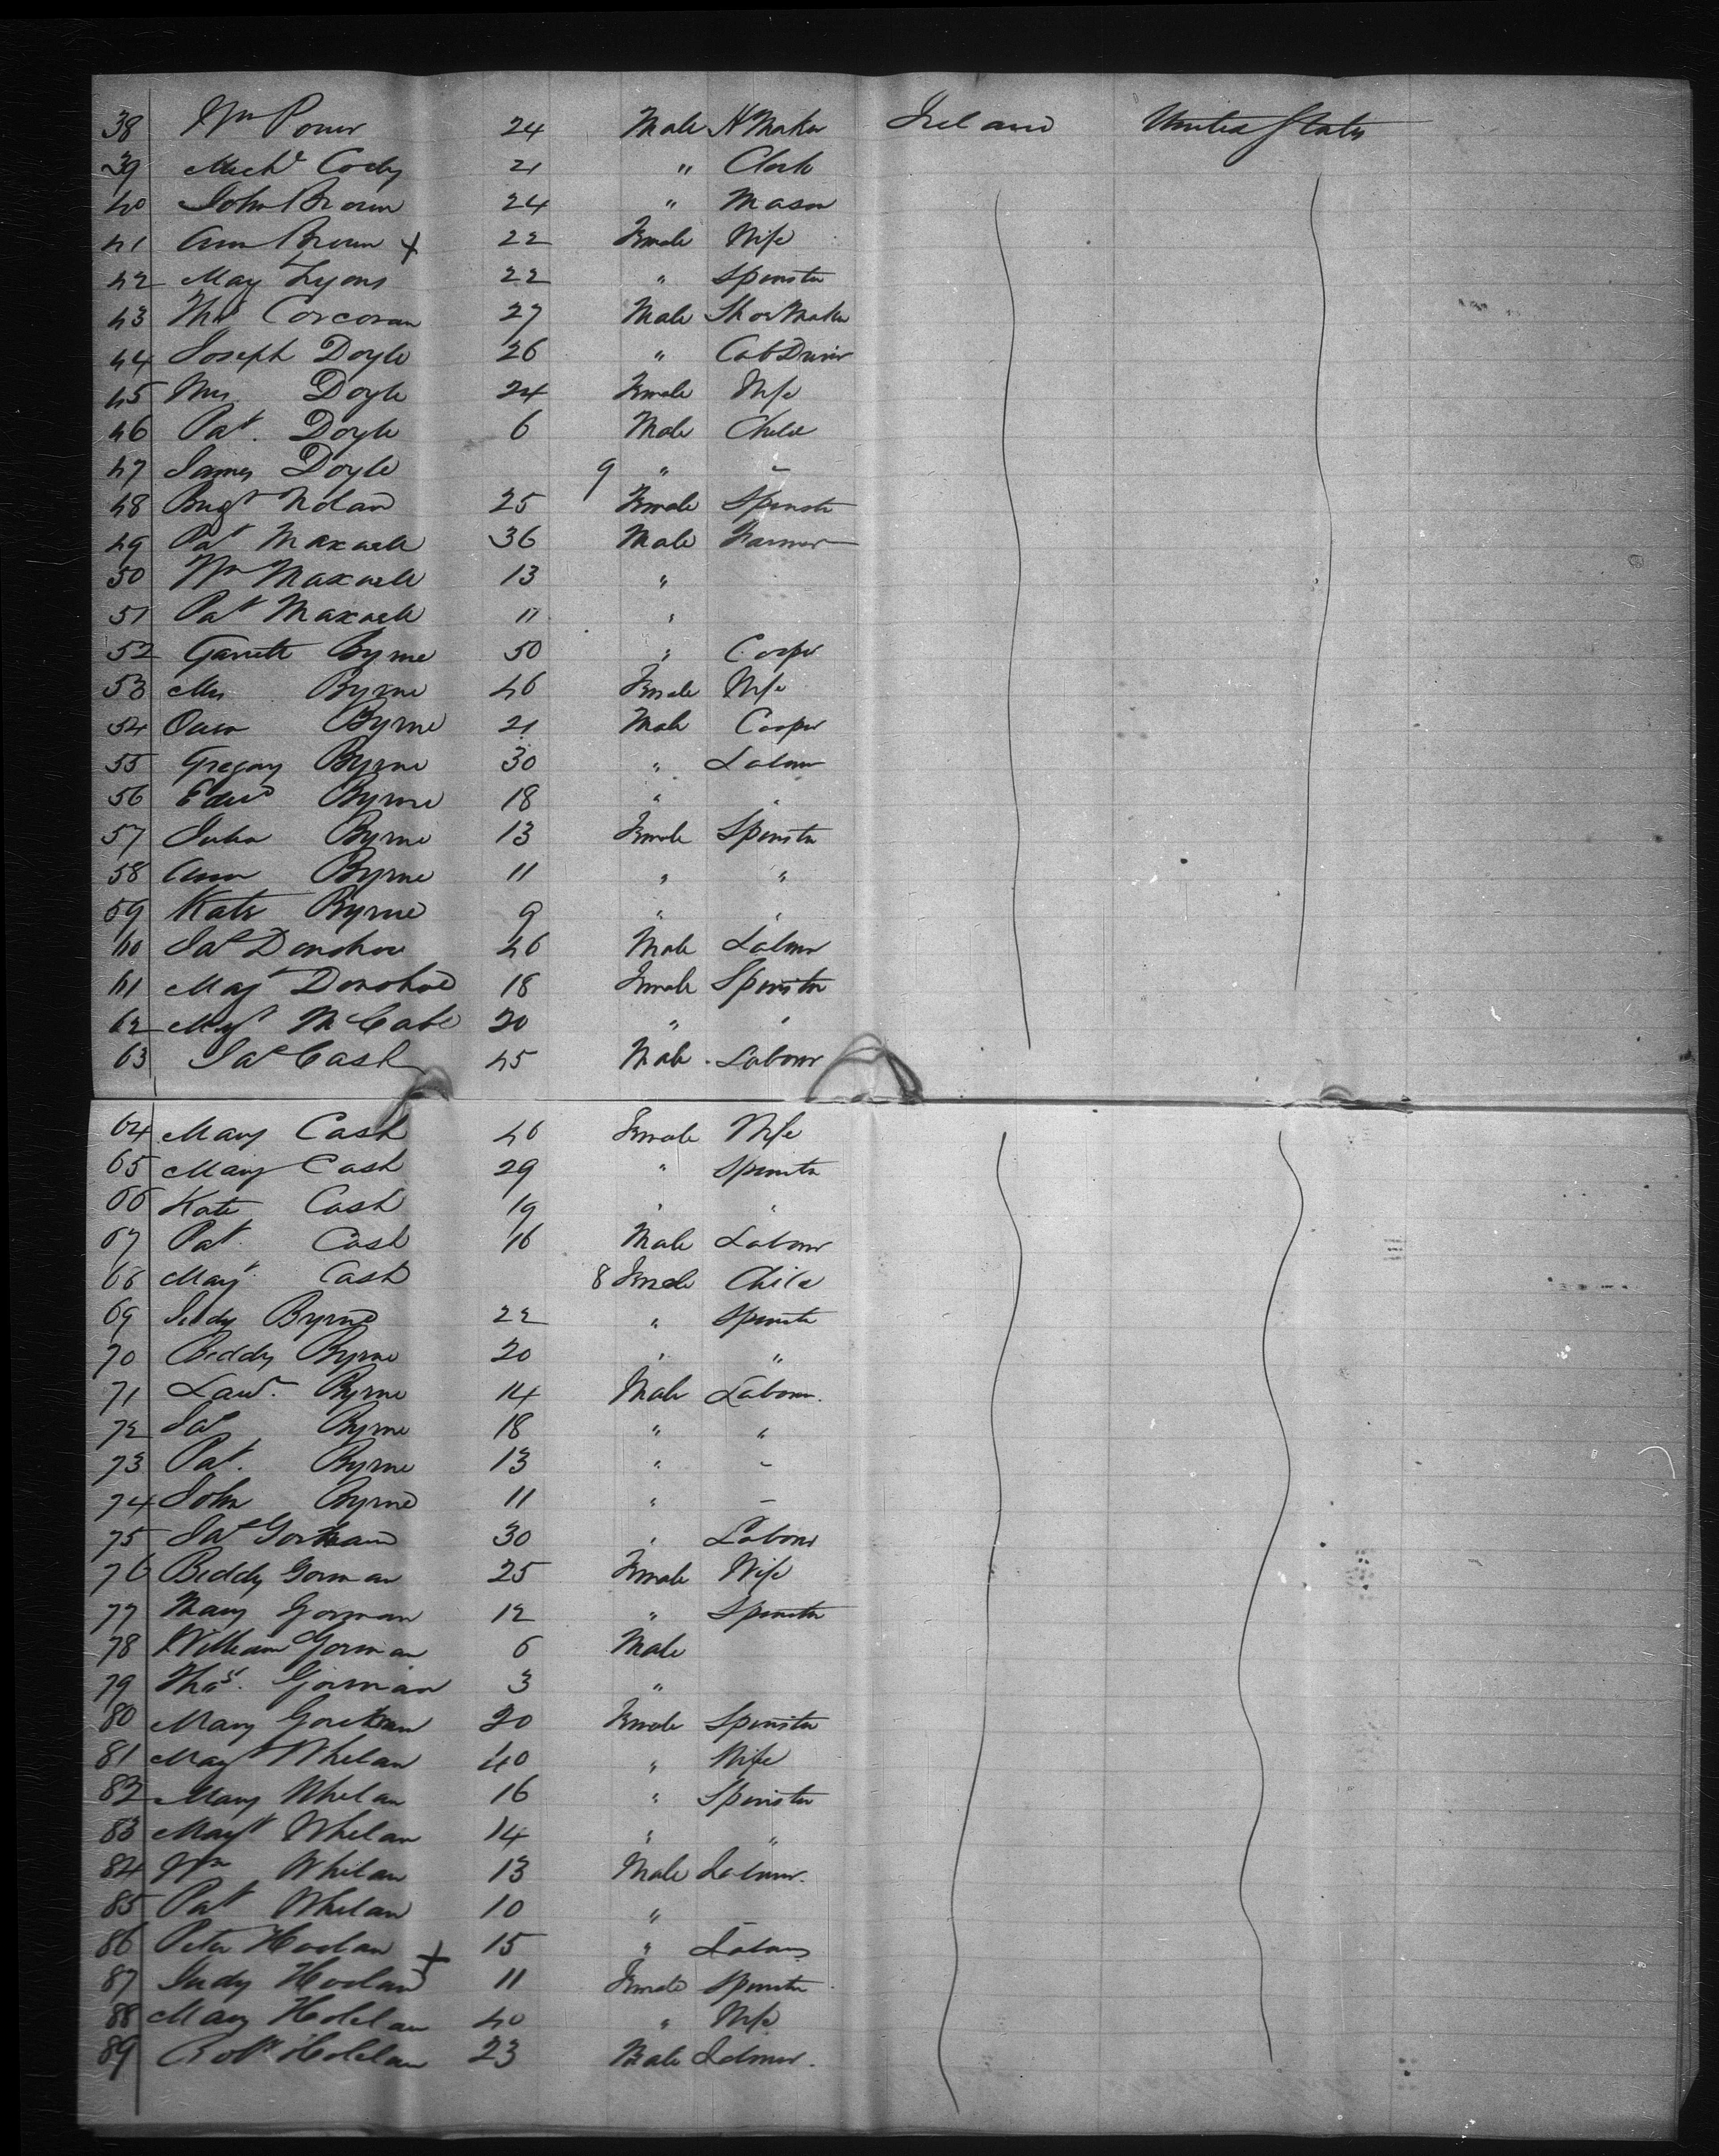 38 Wm Power 24 Male N Maker Ireland United States
39 Michl Cody 21 " Clerk
40 John Brown 24 " Mason
41 Ann Brown + 22 Female Wife
42 May Lyons 22 " Spinster
43 Thos Corcoran 27 Male Shoe Maker
44 Joseph Doyle 26 " Cab Driver
45 Mrs Doyle 24 Female Wife
46 Pat. Doyle 6 Male Child
47 James Doyle 9 " "
48 Bridgt Nolan 25 Female Spinster
49 Pat Maxwell 36 Male Farmer
50 Wm Maxwell 13 "
51 Pat Maxwell 11 "
52 Garrett Byrne 50 " Cooper
53 Mrs Byrne 46 Female Wife
54 Owen Byrne 21 Male Cooper
55 Gregory Byrne 30 " Labour
56 Edwd Byrne 18 " "
57 Julia Byrne 13 Female Spinster
58 Ann Byrne 11 " "
59 Kate Byrne 9 " "
60 Jas Donohoe 46 Male Labour
61 Magt Donohoe 18 Female Spinster
62 Magt McCabe 20 " "
63 Jas Cash 45 Male Labour
64 Mary Cash 46 Female Wife
65 Mary Cash 29 " Spinster
66 Kate Cash 19 " "
67 Pat. Cash 16 Male Labour
68 Magt Cash 8 Female Child
69 Judy Byrne 22 " Spinster
70 Biddy Byrne 20 " "
71 Lawr. Byrne 14 Male Labour.
72 Jas Byrne 18 " "
73 Pat. Byrne 13 " "
74 John Byrne 11 " "
75 Jas Gorman 30 " Labour
76 Biddy Gorman 25 Female Wife
77 Mary Gorman 12 " Spinster
78 William Gorman 6 Male
79 Thos. Gorman 3 "
80 Mary Gorman 20 Female Spinster
81 Magt Whelan 40 " Wife
82 Mary Whelan 16 " Spinster
83 Magt Whelan 14 " "
84 Wm Whelan 13 Male Labour.
85 Pat Whelan 10 "
86 Peter Hoolan + 15 " Labour
87 Judy Hoolan 11 Female Spinster
88 Mary Holclan 40 " Wife
89 Robt Holclan 23 Male Labour.